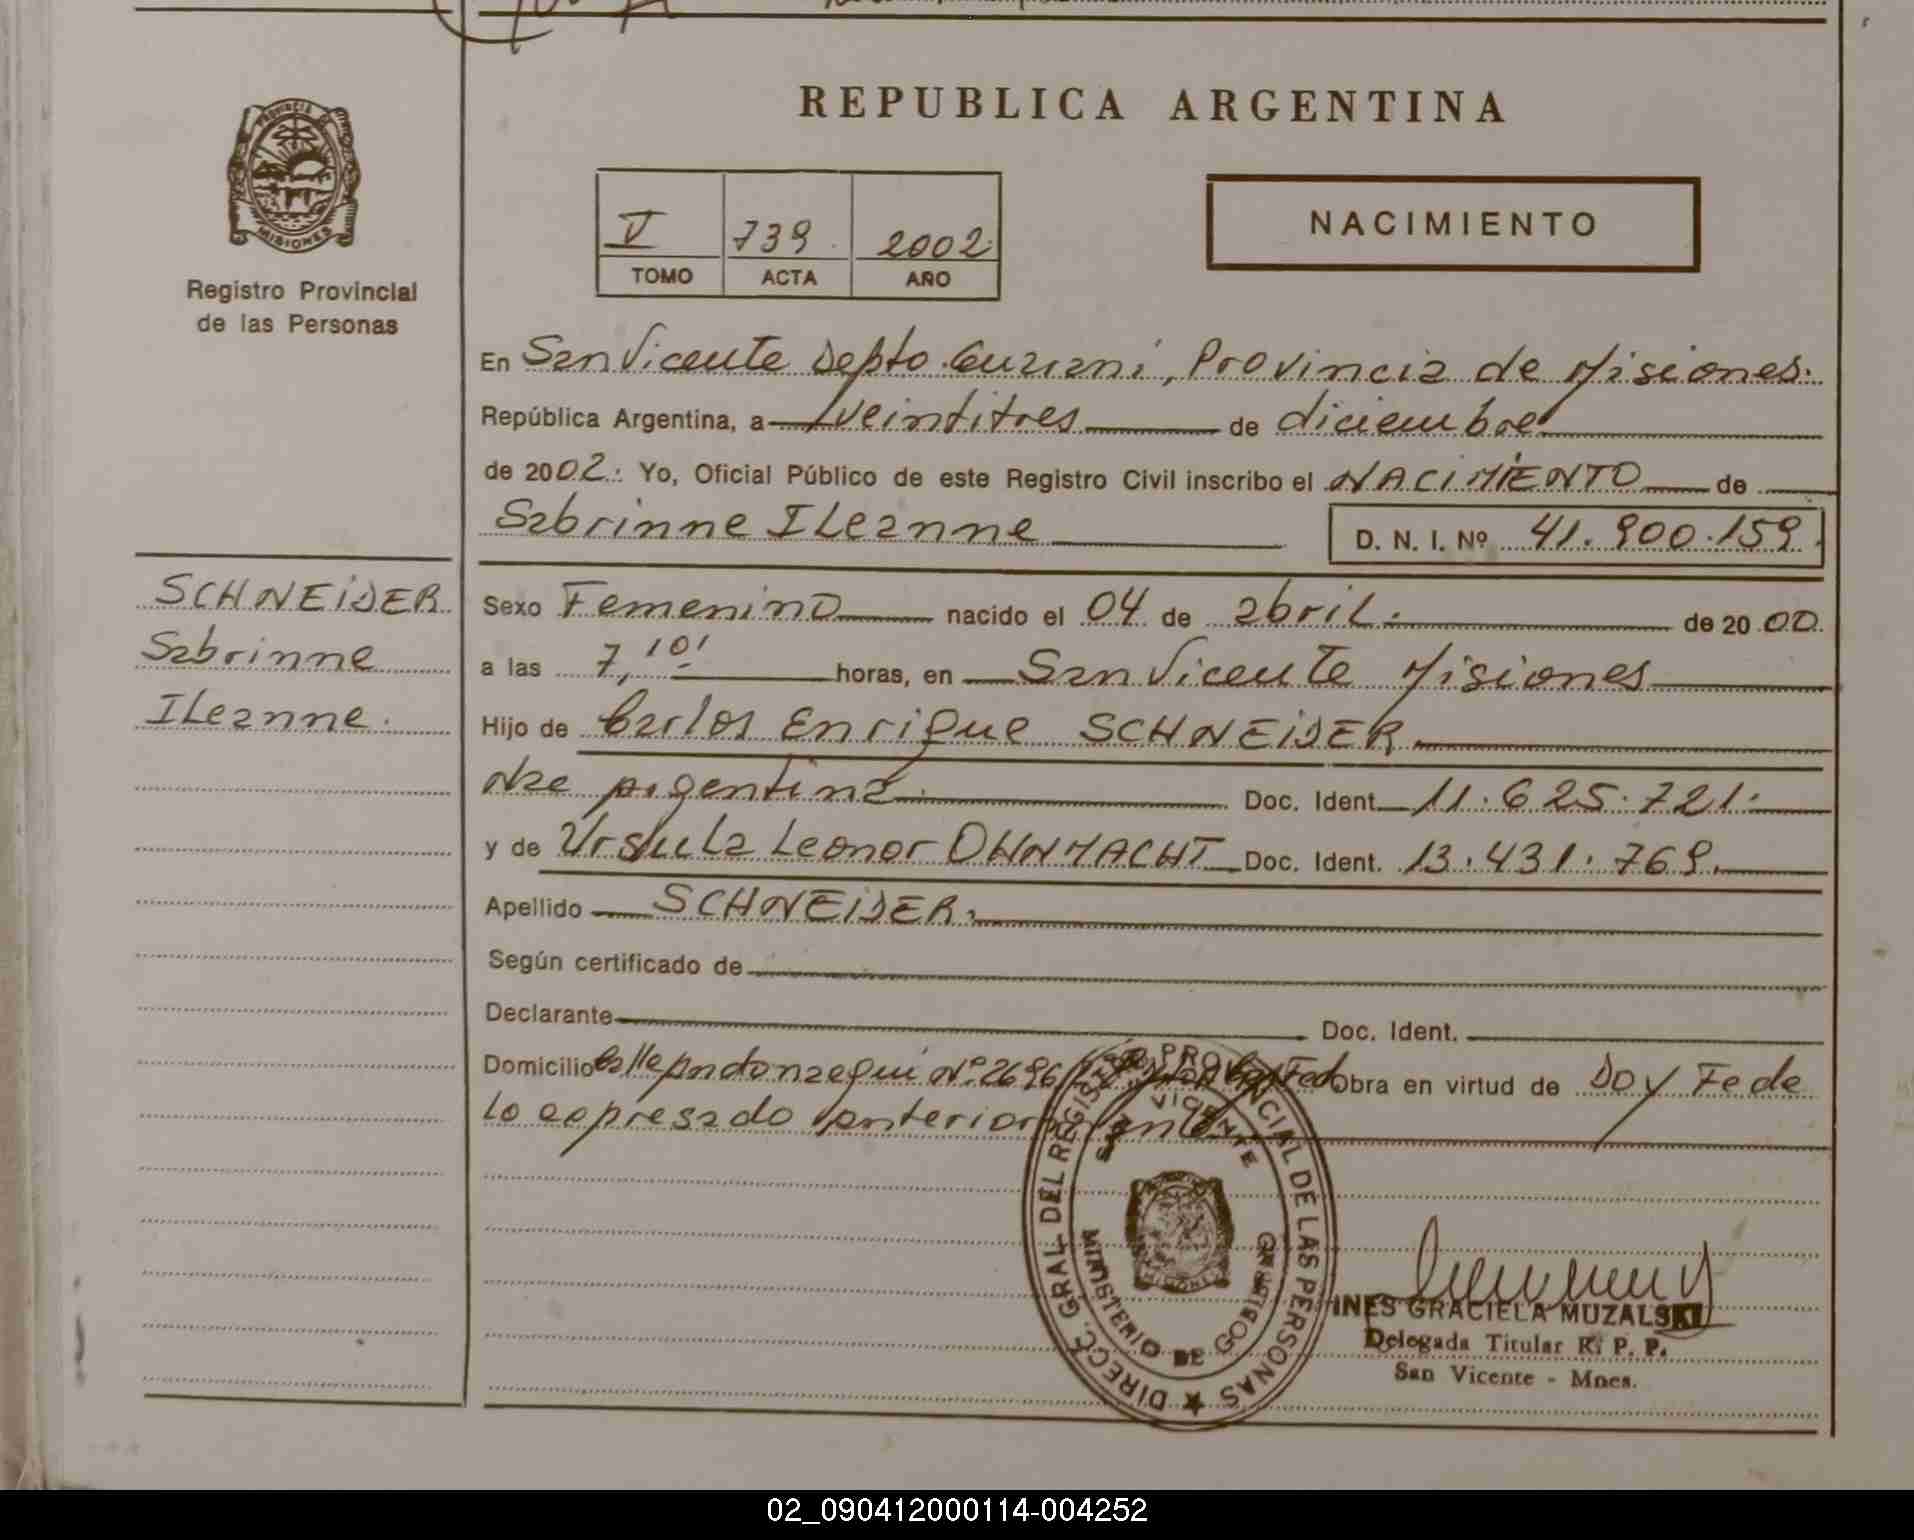 REPUBLICA ARGENTINA
PROVINCIA DE
MISIONES
Registro Provincial
de las Personas
V 739 2002
TOMO ACTA AÑO
NACIMIENTO
En San Vicente Depto. Guaraní, Provincia de Misiones.
República Argentina, a veintitres de diciembre
de 2002. Yo, Oficial Público de este Registro Civil inscribo el NACIMIENTO de
Sabrinne ILeanne D. N. I. Nº 41.900.159.
SCHNEIDER
Sabrinne
ILeanne.
Sexo Femenino nacido el 04 de abril. de 2000.
a las 7,10' horas, en San Vicente Misiones
Hijo de Carlos Enrique SCHNEIDER
Nac Argentina. Doc. Ident. 11.625.721.
y de Ursula Leonor OHNMACHT Doc. Ident. 13.431.769.
Apellido SCHNEIDER.
Según certificado de
Declarante Doc. Ident.
Domicilio Calle Nº 2696 Obra en virtud de Doy Fe de
Lo expresado anteriormente
DIRECC. GRAL. DEL REGISTRO PROVINCIAL DE LAS PERSONAS
SAN VICENTE
MISIONES
MINISTERIO DE GOBIERNO
INES GRACIELA MUZALSKI
Delegada Titular R. P. P.
San Vicente - Mnes.
02_090412000114-004252